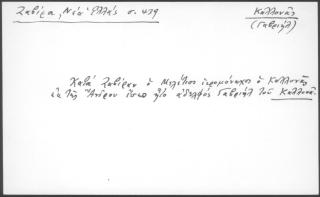 Ζαβίρα, Νέα Ἑλλάς σ. 479
Καλλονᾶς
(Γαβριήλ)
Κατά Ζαβίραν ὁ Μελέτιος ἱερομόναχος ὁ Καλλονᾶς
ἐκ τῆς Ἄνδρου ἦτο ἀδελφός Γαβριήλ τοῦ Καλλονᾶ.